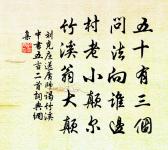 五十有三個
問法向誰邊
村老小顛尔
竹溪翁大顛
劉克庄送膺師謁竹溪
中書五言二首詞典網
集